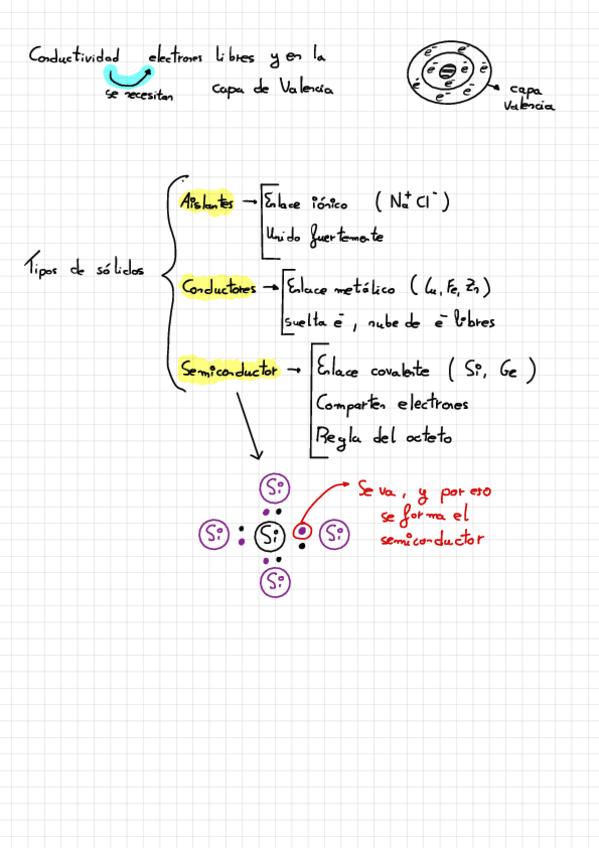 Conductividad electrones libres y en la
se necesitan capa de Valencia
e⁻ e⁻ e⁻ e⁻ e⁻ e⁻ e⁻ e⁻ e⁻
capa
Valencia
Tipos de sólidos
Aislantes → Enlace iónico (Na⁺Cl⁻)
Unido fuertemente
Conductores → Enlace metálico (Cu, Fe, Zn)
suelta e⁻, nube de e⁻ libres
Semiconductor → Enlace covalente (Si, Ge)
Comparten electrones
Regla del octeto
Si
Si Si Si
Si
Se va, y por eso
se forma el
semiconductor